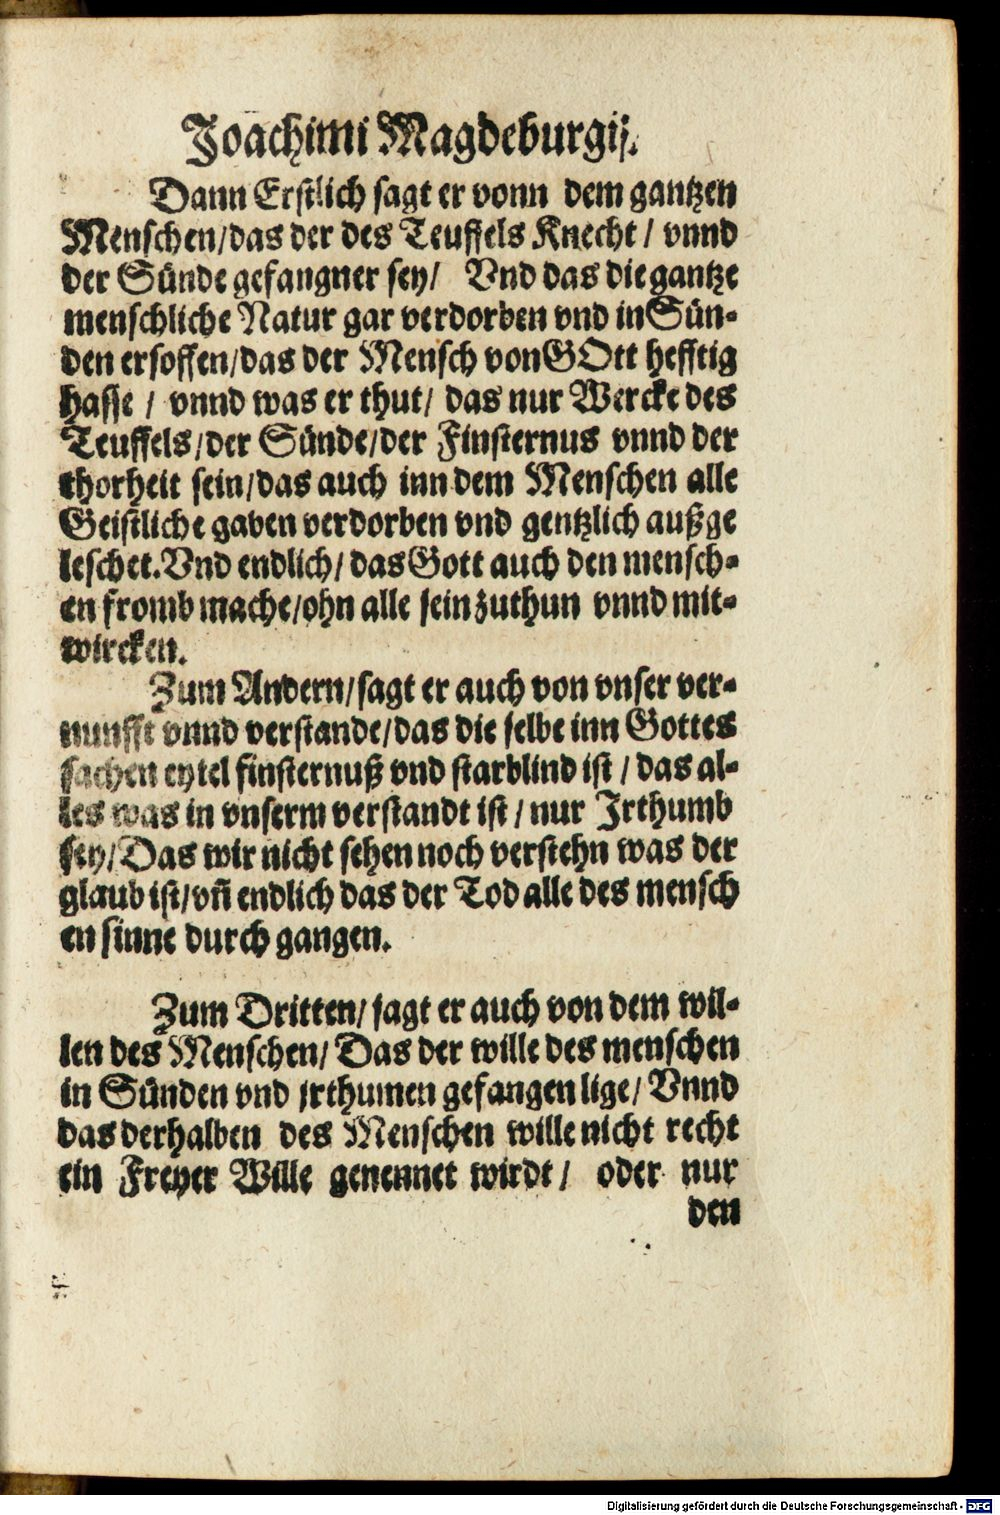 Joachimi Magdeburgij.
Dann Erstlich sagt er vonn dem gantzen
Menschen/das der des Teuffels Knecht / vnnd
der Sünde gefangner sey/ Vnd das die gantze
menschliche Natur gar verdorben vnd in Sün-
den ersoffen/das der Mensch von GOtt hefftig
hasse / vnnd was er thut/ das nur Wercke des
Teuffels/der Sünde/der Finsternus vnnd der
thorheit sein/das auch inn dem Menschen alle
Geistliche gaben verdorben vnd gentzlich außge
leschet.Vnd endlich/ das Gott auch den mensch-
en fromb mache/ohn alle sein zuthun vnnd mit-
wircken.
Zum Andern/sagt er auch von vnser ver-
nunfft vnnd verstande/das die selbe inn Gottes
sachen eytel finsternuß vnd starblind ist / das al-
les was in vnserm verstandt ist / nur Jrthumb
sey/Das wir nicht sehen noch verstehn was der
glaub ist/vñ endlich das der Tod alle des mensch
en sinne durch gangen.
Zum Dritten/sagt er auch von dem wil-
len des Menschen/ Das der wille des menschen
in Sünden vnd jrthumen gefangen lige/ Vnnd
das derhalben des Menschen wille nicht recht
ein Freyer Wille genennet wirdt / oder nur
den
Digitalisierung gefördert durch die Deutsche Forschungsgemeinschaft - DFG